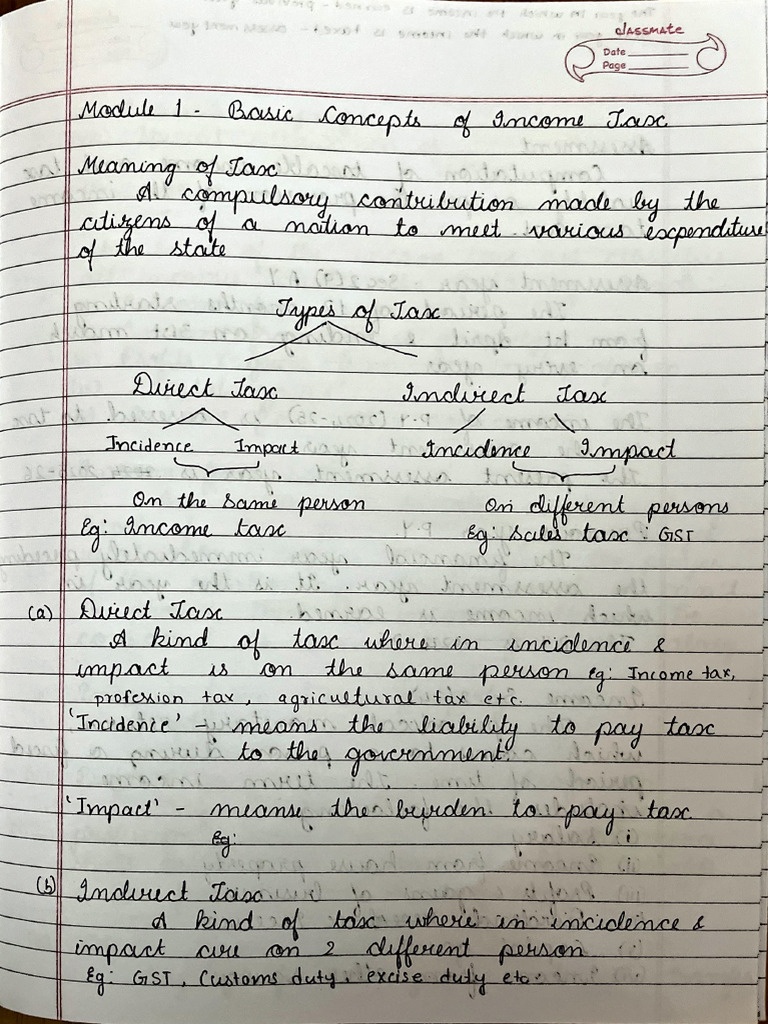 classmate
Date
Page
Module 1 - Basic Concepts of Income Tax
Meaning of Tax
A compulsory contribution made by the
citizens of a nation to meet various expenditure
of the state
Types of Tax
Direct Tax Indirect Tax
Incidence Impact Incidence Impact
On the same person On different persons
Eg: Income tax Eg: Sales tax : GST
(a) Direct Tax
A kind of tax where in incidence &
impact is on the same person eg: Income tax,
profession tax, agricultural tax etc.
'Incidence' - means the liability to pay tax
to the government.
'Impact' - means the burden to pay tax
Eg:
(b) Indirect Tax
A kind of tax where in incidence &
impact are on 2 different person
Eg: GST, Customs duty, excise duty etc.